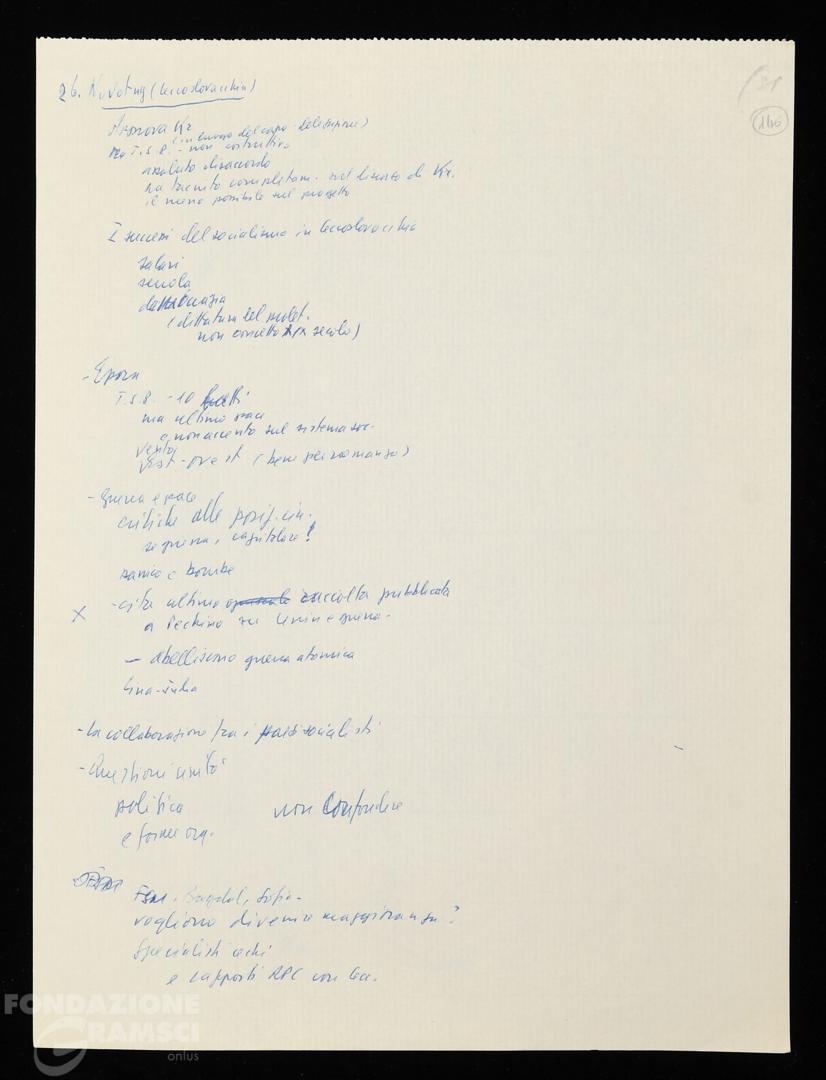 26. Novotny (Cecoslovacchia)
31
146
Approva Kr
(in euovo del capo delegazione)
T.S.P. - non costruttivo
assoluto disaccordo
ha taciuto completam. sul discorso di Kr.
il meno possibile sul progetto
I successi del socialismo in Cecoslovacchia
salari
scuola
democrazia
(dittatura del prolet.
non concetto secolo)
- Epoca
T.S.P. - 10 tratti
ma ultimo pace
e non accento sul sistema soc.
vento
Est-ovest (bene per romanzo)
- Guerra e pace
critiche alle posiz. cin.
se guerra, capitalismo!
panico e bombe
X - cita ultima raccolta pubblicata
a Pechino su Lenin e guerra.
- abelliscono guerra atomica
Cina-India
- La collaborazione fra i paesi socialisti
- Questioni unità
politica non confondere
e forme org.
FSM, Bagdad, Sofia -
vogliono divenire maggioranza?
Specialisti cechi
e rapporti RPC con Cec.
FONDAZIONE
GRAMSCI
onlus